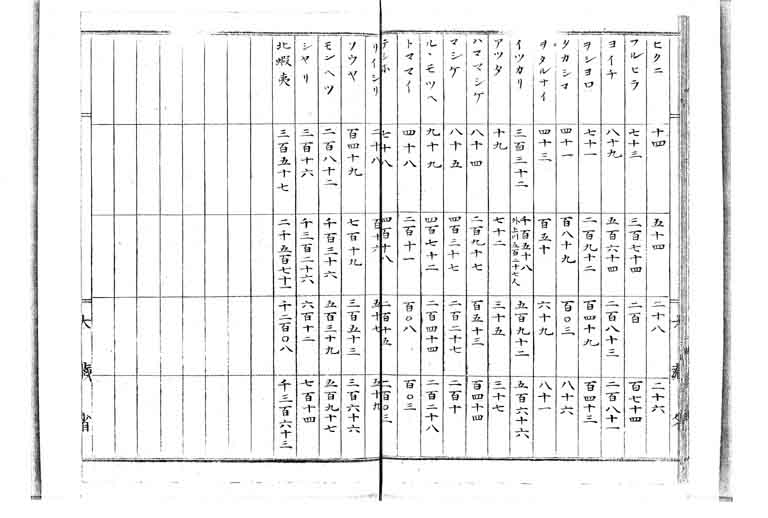 ヒクニ 十四 五十四 二十八 二十六
フルヒラ 七十三 三百七十四 二百 百七十四
ヨイチ 八十九 五百六十四 二百八十三 二百八十一
ヲシヨロ 七十一 二百九十二 百四十九 百四十三
タカシマ 四十一 百八十九 百〇三 八十六
ヲタルナイ 四十三 百五十 六十九 八十一
イツカリ 三百三十二 千百五十八 五百九十二 五百六十六
アツタ 十九 七十二 三十五 三十七
ハママシケ 八十四 二百九十七 百五十三 百四十四
マシケ 八十五 四百三十七 二百二十七 二百十
ル・モツヘ 九十九 四百七十二 二百四十四 二百二十八
トママイ 四十八 二百十一 百〇八 百〇三
テシホ 七十八 四百十八 二百十五 二百〇三
リイシリ 二十八 百十六 五十七 五十九
ソウヤ 百四十九 七百十九 三百五十三 三百六十六
モンヘツ 二百八十二 千百三十六 五百三十九 五百九十七
シヤリ 三百十六 千三百二十六 六百十二 七百十四
北蝦夷 三百五十七 二千五百七十一 千二百〇八 千三百六十三
大藏省